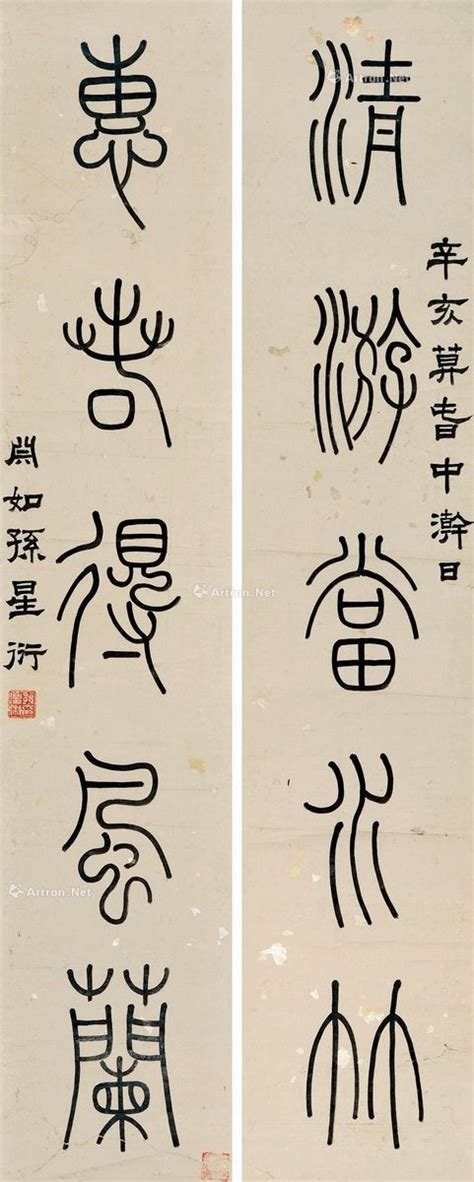 清游當水竹
辛亥莫旾中澣日
惠若得風蘭
𣶒如孫星衍
Artron.Net
Artron.Net
Artron.Net